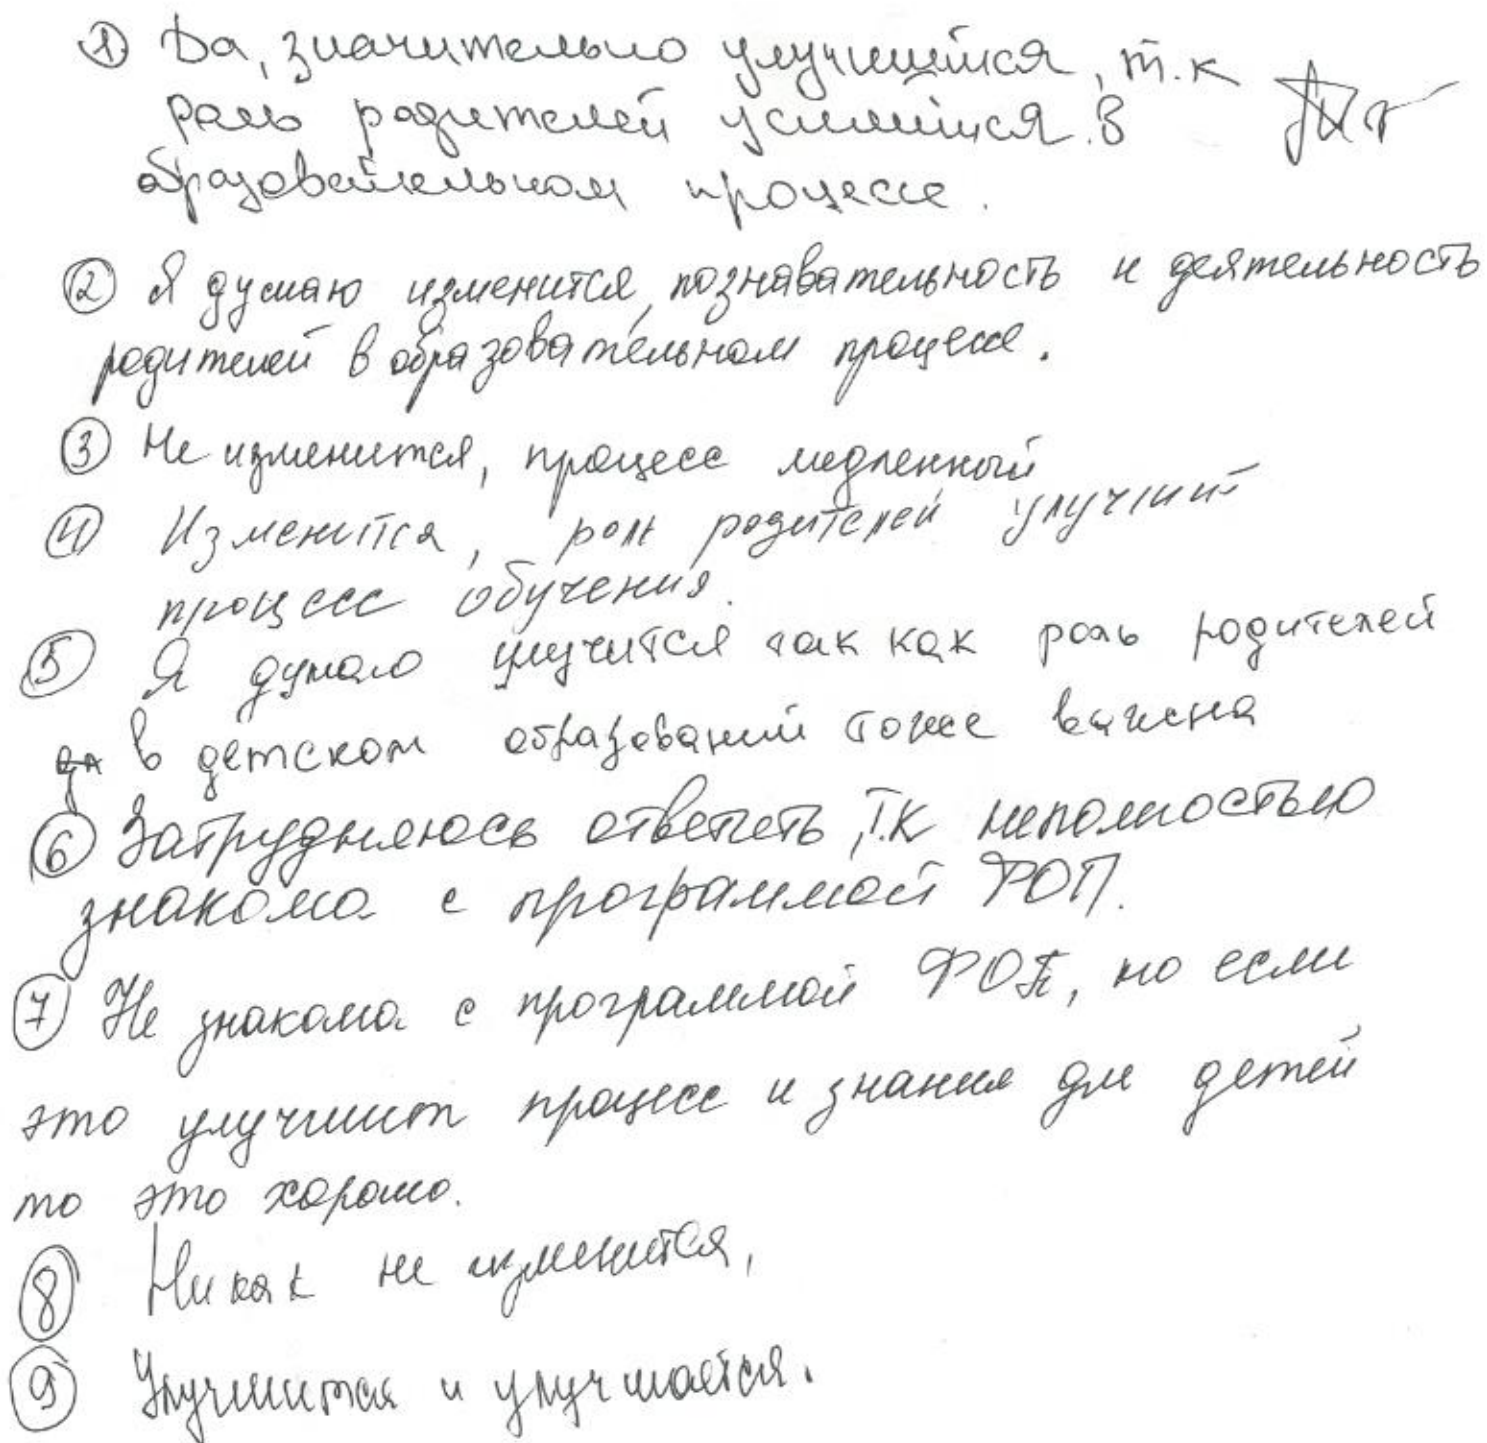 ① Да, значительно улучшится, т.к
роль родителей усилится в
образовательном процессе.
② Я думаю изменится, познавательность и деятельность
родителей в образовательном процессе.
③ Не изменится, процесс медленный
④ Изменится, роль родителей улучшит
процесс обучения.
⑤ Я думаю улучится так как роль родителей
в детском образовании тоже важна
⑥ Затрудняюсь ответить, т.к неполностью
знакома с программой ФОП.
⑦ Не знакома с программой ФОП, но если
это улучшит процесс и знания для детей
то это хорошо.
⑧ Никак не изменится,
⑨ Улучшится и улучшается.